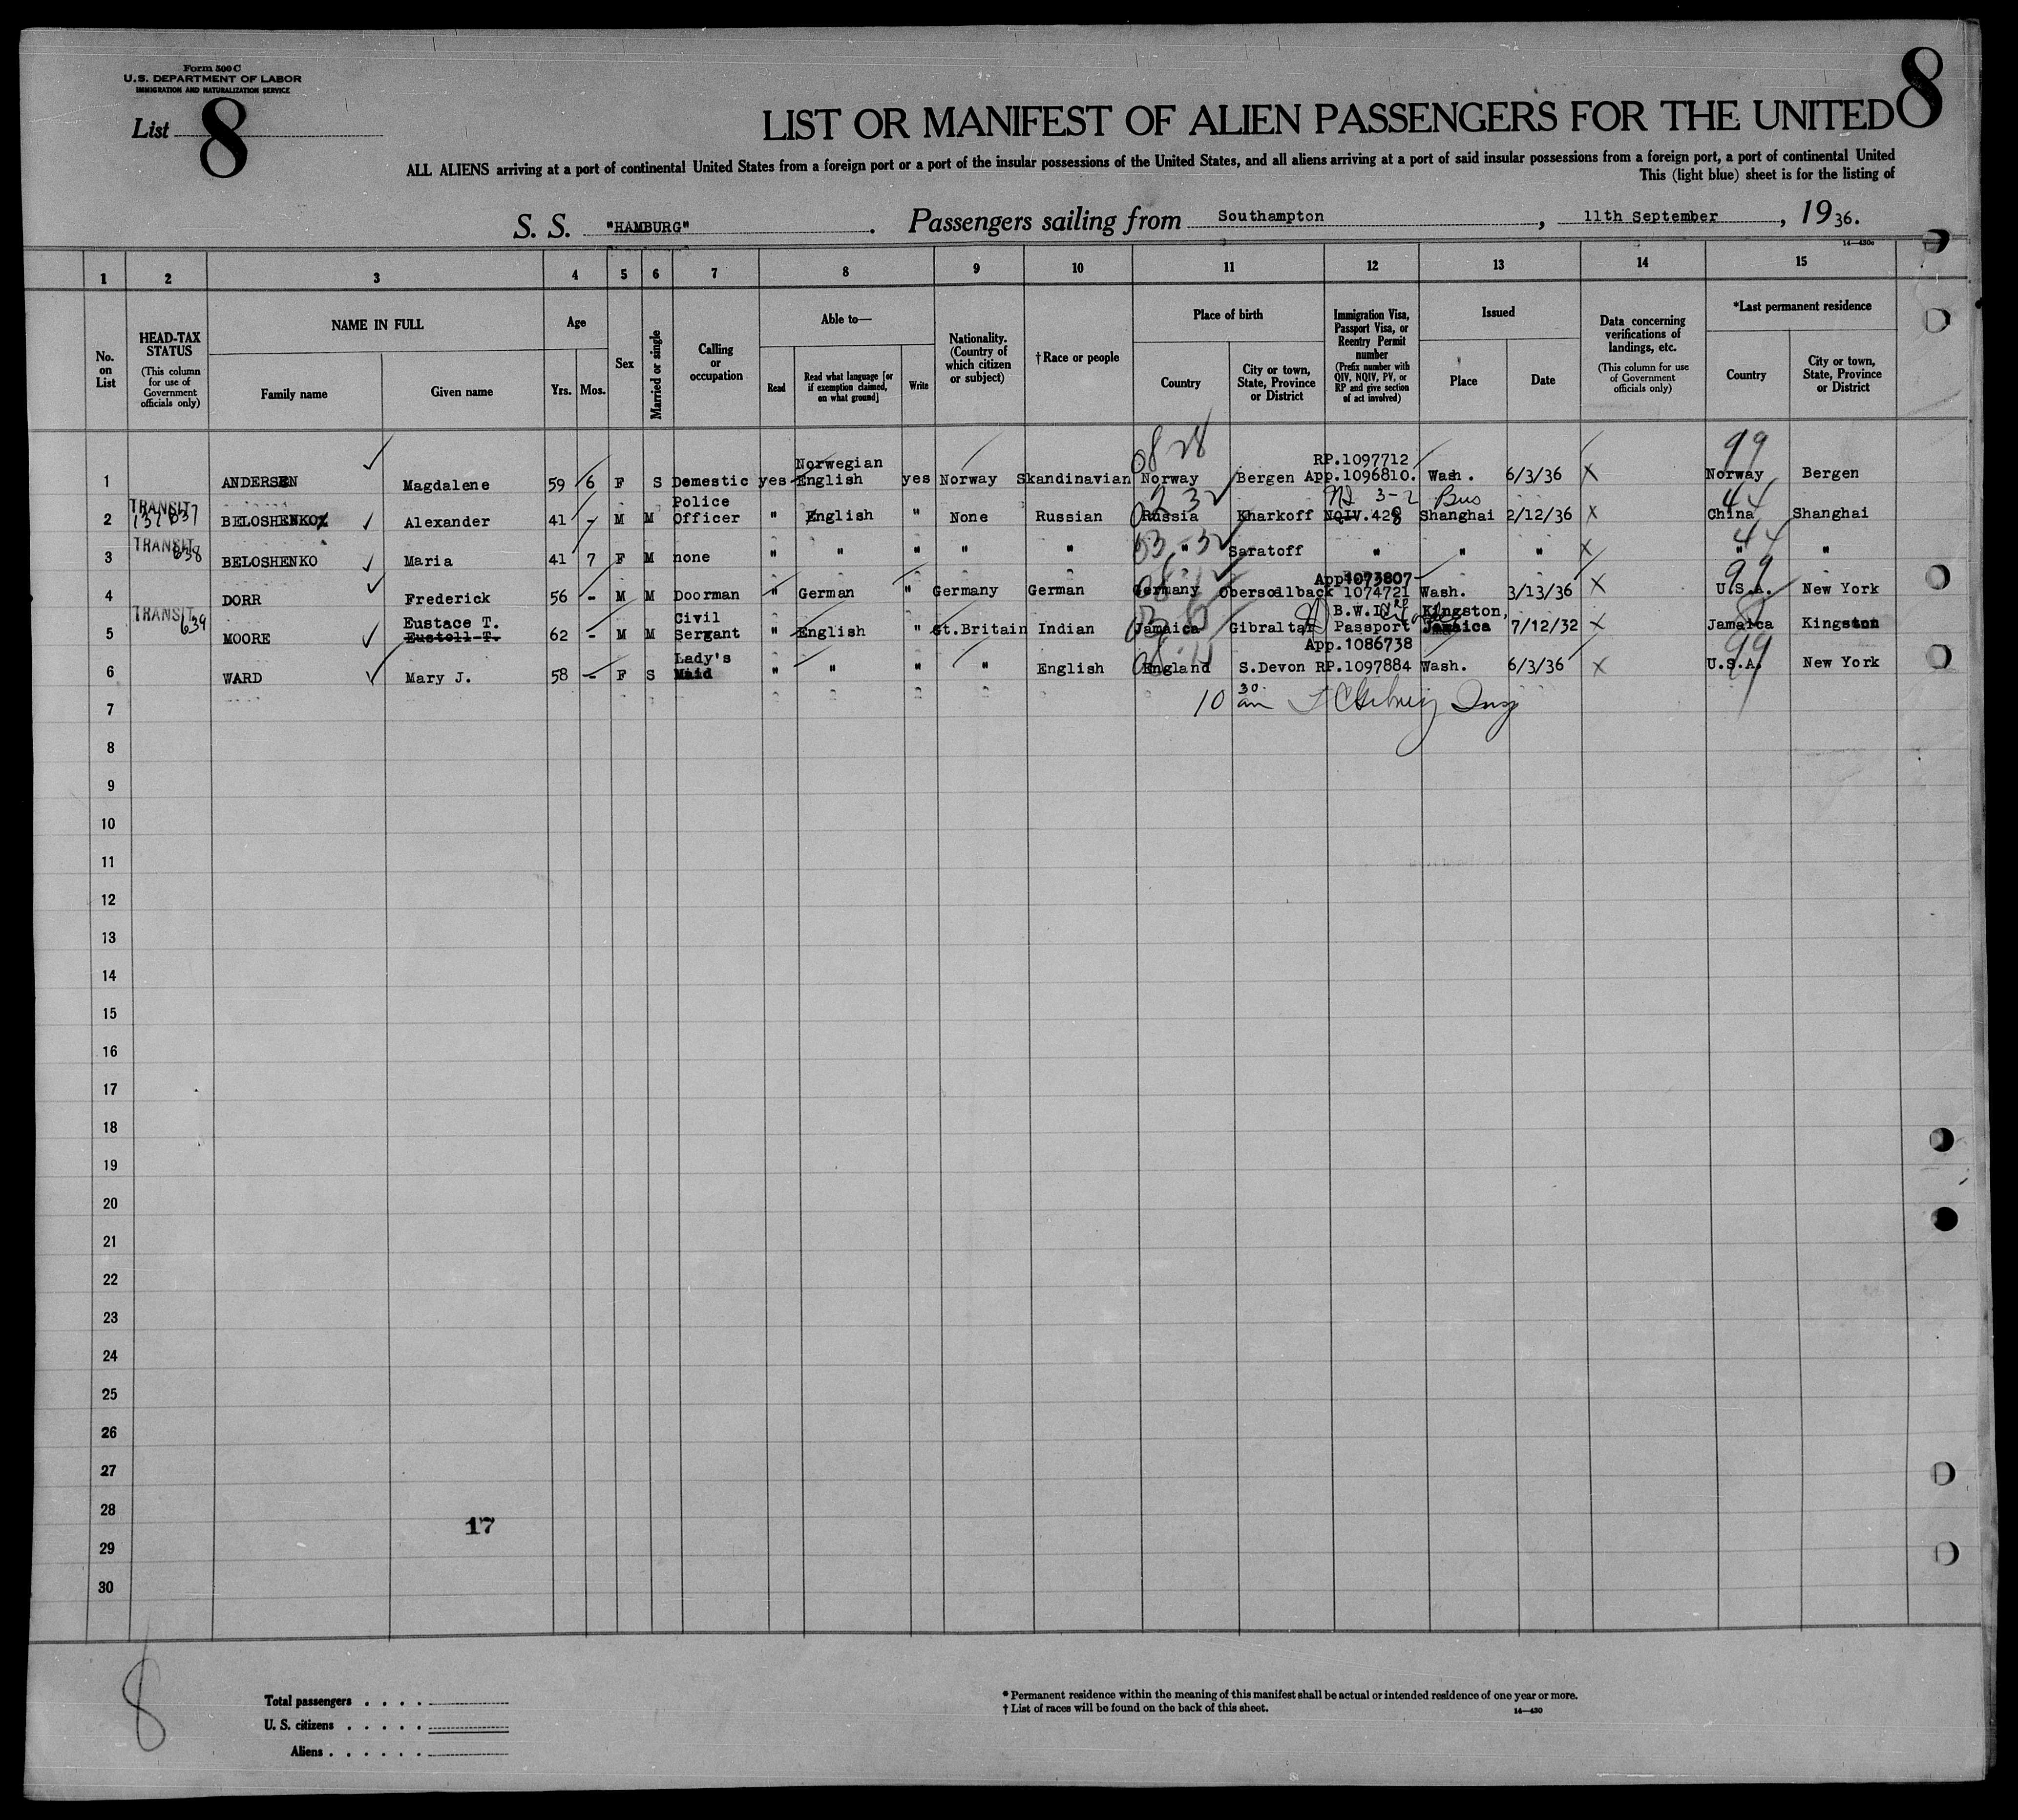 Form 500 C
U.S. DEPARTMENT OF LABOR
IMMIGRATION AND NATURALIZATION SERVICE
List 8
8
LIST OR MANIFEST OF ALIEN PASSENGERS FOR THE UNITED
ALL ALIENS arriving at a port of continental United States from a foreign port or a port of the insular possessions of the United States, and all aliens arriving at a port of said insular possessions from a foreign port, a port of continental United
This (light blue) sheet is for the listing of
S. S. "HAMBURG". Passengers sailing from Southampton, 11th September, 1936.
14—430c
1 2 3 4 5 6 7 8 9 10 11 12 13 14 15
No. on List
HEAD-TAX STATUS (This column for use of Government officials only)
NAME IN FULL
Family name
Given name
Age
Yrs. Mos.
Sex
Married or single
Calling or occupation
Able to—
Read
Read what language [or if exemption claimed, on what ground]
Write
Nationality. (Country of which citizen or subject)
†Race or people
Place of birth
Country
City or town, State, Province or District
Immigration Visa, Passport Visa, or Reentry Permit number (Prefix number with QIV, NQIV, PV, or RP and give section of act involved)
Issued
Place
Date
Data concerning verifications of landings, etc. (This column for use of Government officials only)
*Last permanent residence
Country
City or town, State, Province or District
0828 99
Norwegian RP.1097712
1 ANDERSEN Magdalene 59 6 F S Domestic yes English yes Norway Skandinavian Norway Bergen App.1096810. Wash. 6/3/36 X Norway Bergen
TRANSIT Police 3-2 Bus 44
2 637 BELOSHENKO Alexander 41 - M M Officer " English " None Russian Russia Kharkoff NQIV.428 Shanghai 2/12/36 X China Shanghai
TRANSIT 44
3 638 BELOSHENKO Maria 41 7 F M none " " " " " " Saratoff " " " X " "
App1073807 99
4 DORR Frederick 56 - M M Doorman " German " Germany German Germany Obersollback 1074721 Wash. 3/13/36 X U.S.A. New York
TRANSIT Eustace T. Civil B.W.I. Kingston,
5 639 MOORE Eustell T. 62 - M M Sergant " English " Gt.Britain Indian Jamaica Gibraltar Passport Jamaica 7/12/32 X Jamaica Kingston
Lady's App.1086738 99
6 WARD Mary J. 58 - F S Maid " " " " English England S.Devon RP.1097884 Wash. 6/3/36 X U.S.A. New York
7 10 30 am
8
9
10
11
12
13
14
15
16
17
18
19
20
21
22
23
24
25
26
27
28
17
29
30
8
Total passengers . . . .
U. S. citizens . . . . .
Aliens . . . . . .
* Permanent residence within the meaning of this manifest shall be actual or intended residence of one year or more.
† List of races will be found on the back of this sheet.
14—430